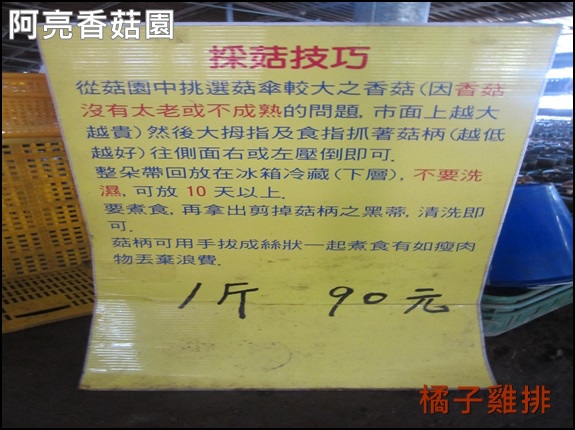 阿亮香菇園
採菇技巧
從菇園中挑選菇傘較大之香菇(因香菇
沒有太老或不成熟的問題,市面上越大
越貴)然後大拇指及食指抓著菇柄(越低
越好)往側面右或左壓倒即可.
整朵帶回放在冰箱冷藏(下層),不要洗
濕,可放10天以上.
要煮食,再拿出剪掉菇柄之黑蒂,清洗即
可.
菇柄可用手拔成絲狀一起煮食有如瘦肉
物丟棄浪費.
1斤 90元
橘子雞排